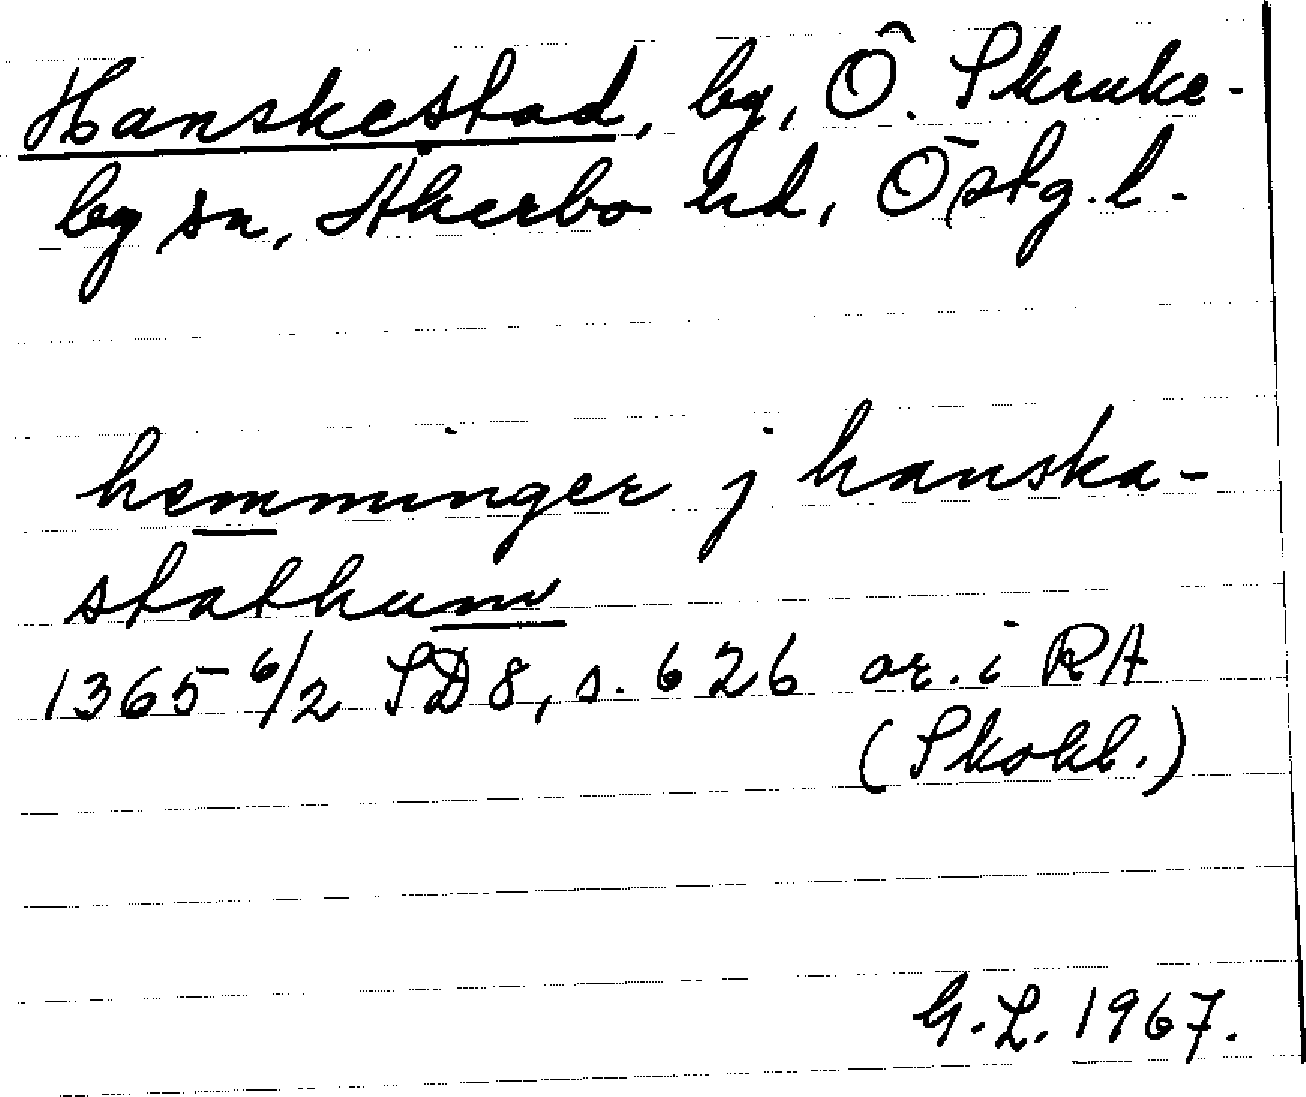 Hanskestad, by, Ö. Skruke-
by sn, Åkerbo hd, Östg. l.
hemminger j hanska-
stathum
1365 6/2 SD 8, s. 626 or. i RA
(Skokl.)
G. L. 1967.